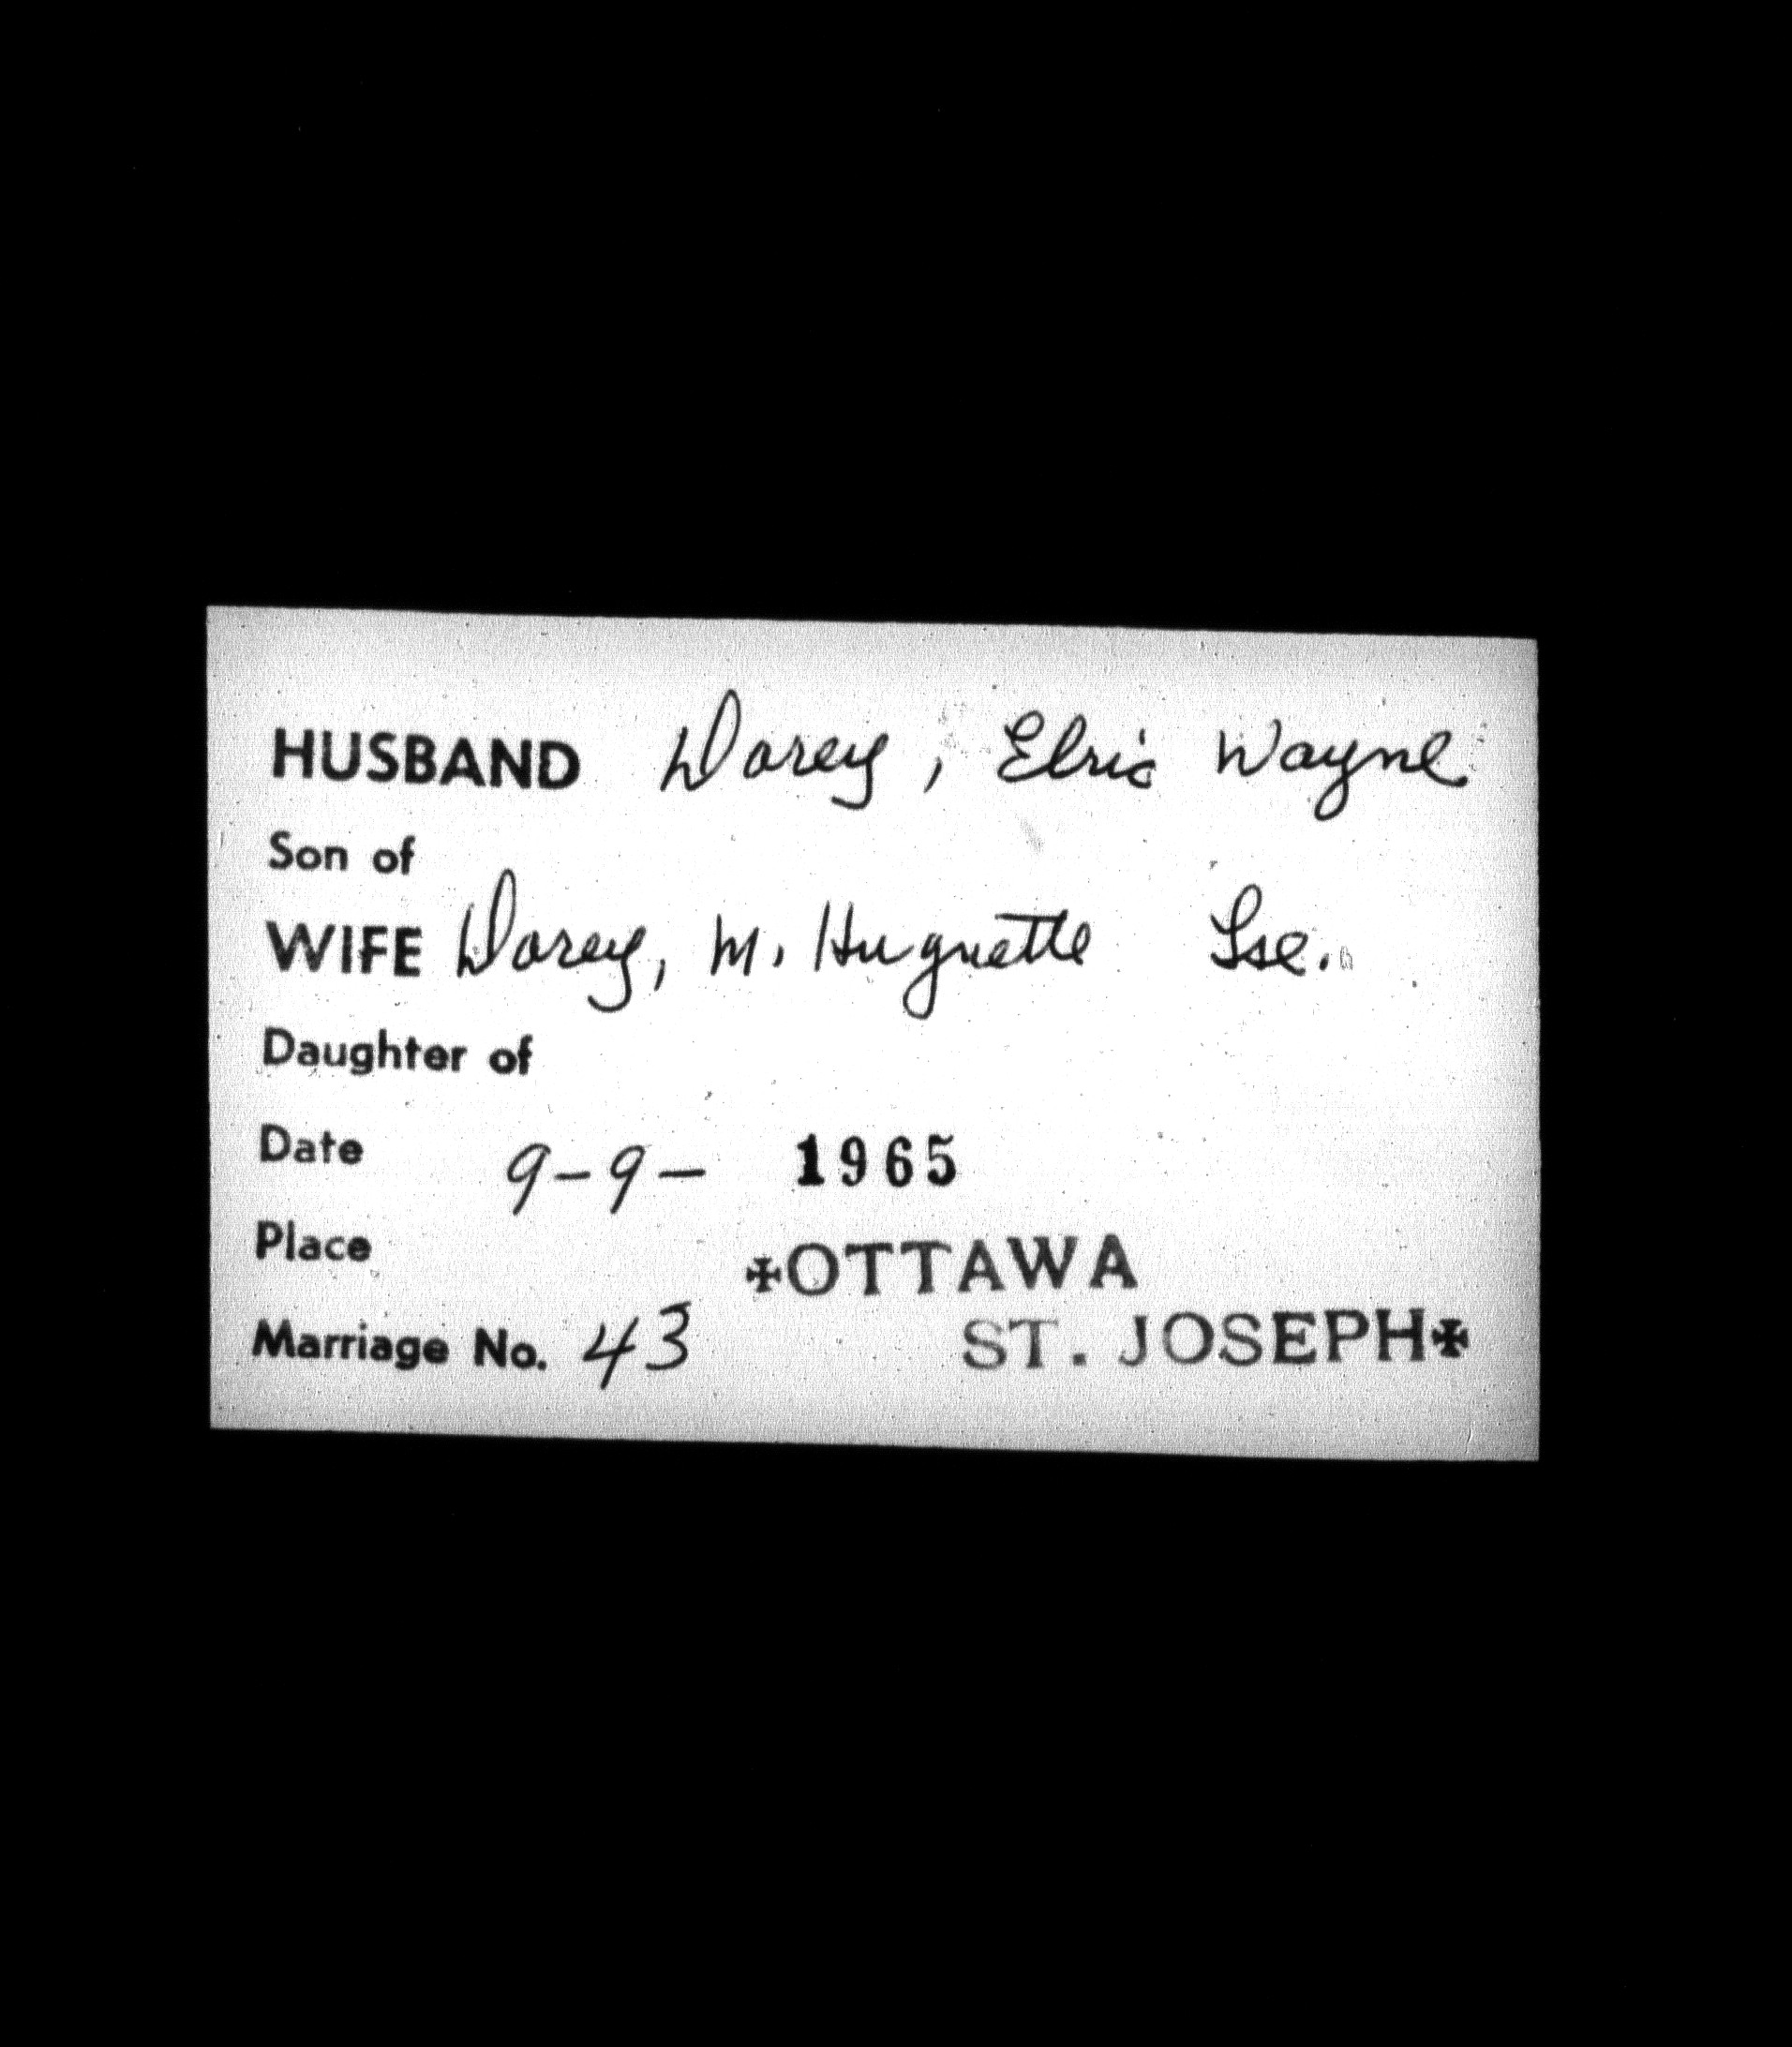 HUSBAND Dorey, Elric Wayne
Son of
WIFE Dorey, M. Huguette Lse.
Daughter of
Date 9-9- 1965
Place ✠OTTAWA
Marriage No. 43 ST. JOSEPH✠